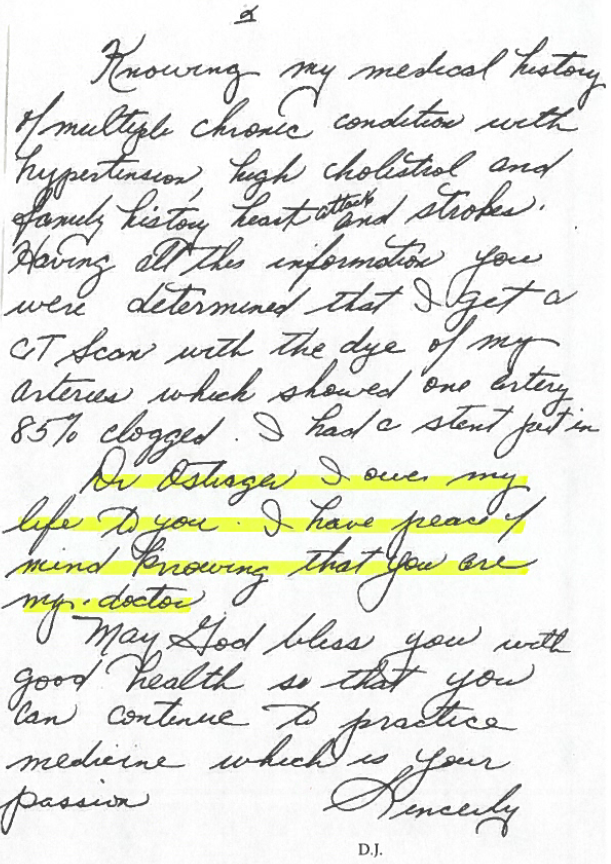 2
Knowing my medical history
of multiple chronic condition with
hypertension, high cholistrol and
family history heart attack and strokes.
Having all this information you
were determined that I get a
CT Scan with the dye of my
arteries which showed one artery
85% clogged. I had a stent put in
Dr Ostrager I owe my
life to you. I have peace of
mind knowing that you are
my doctor
May God bless you with
good health so that you
can continue to practice
medicine which is your
passion
Sincerly
D.J.